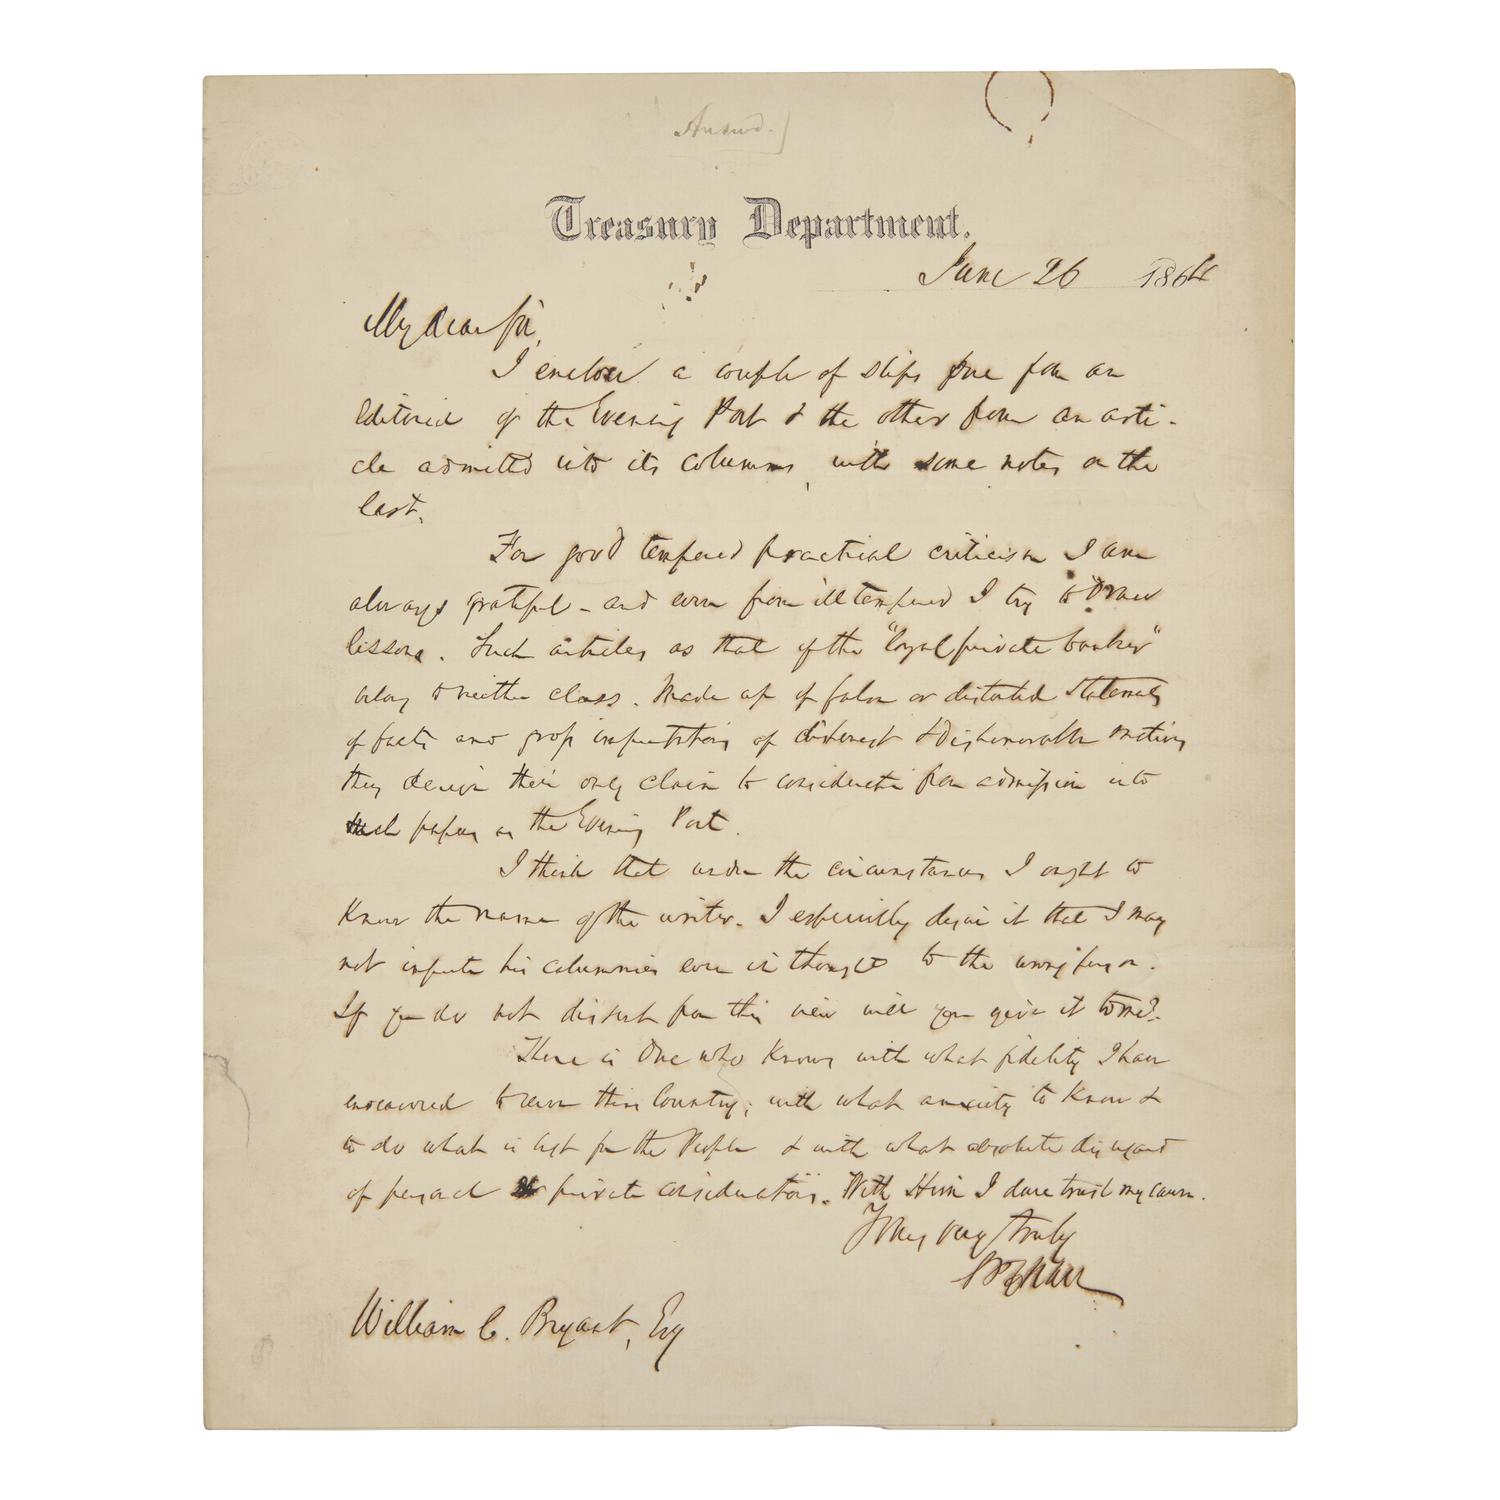 Answd.
Treasury Department.
June 26 1864
My dear Sir,
I enclose a couple of slips one from an
Editorial of the Evening Post & the other from an arti-
cle admitted into its columns, with some notes on the
last.
For good tempered practical criticism I am
always grateful - and even from illtempered I try to draw
lessons. Such articles as that of the "loyal private banker"
belong to neither class. Made up of false or distorted statements
of facts and gross imputations of dishonest & dishonorable motives
they derive their only claim to consideration from admission into
such papers as the Evening Post.
I think that under the circumstances I ought to
know the name of the writer. I especially desire it that I may
not impute his calumnies even in thought to the wrong person.
If you do not dissent from this view will you give it to me?
There is One who knows with what fidelity I have
endeavored to serve this Country; with what anxiety to know &
to do what is best for the People & with what absolute disregard
of personal or private considerations. With Him I dare trust my cause.
Yours very truly
SPChase
William C. Bryant, Esq